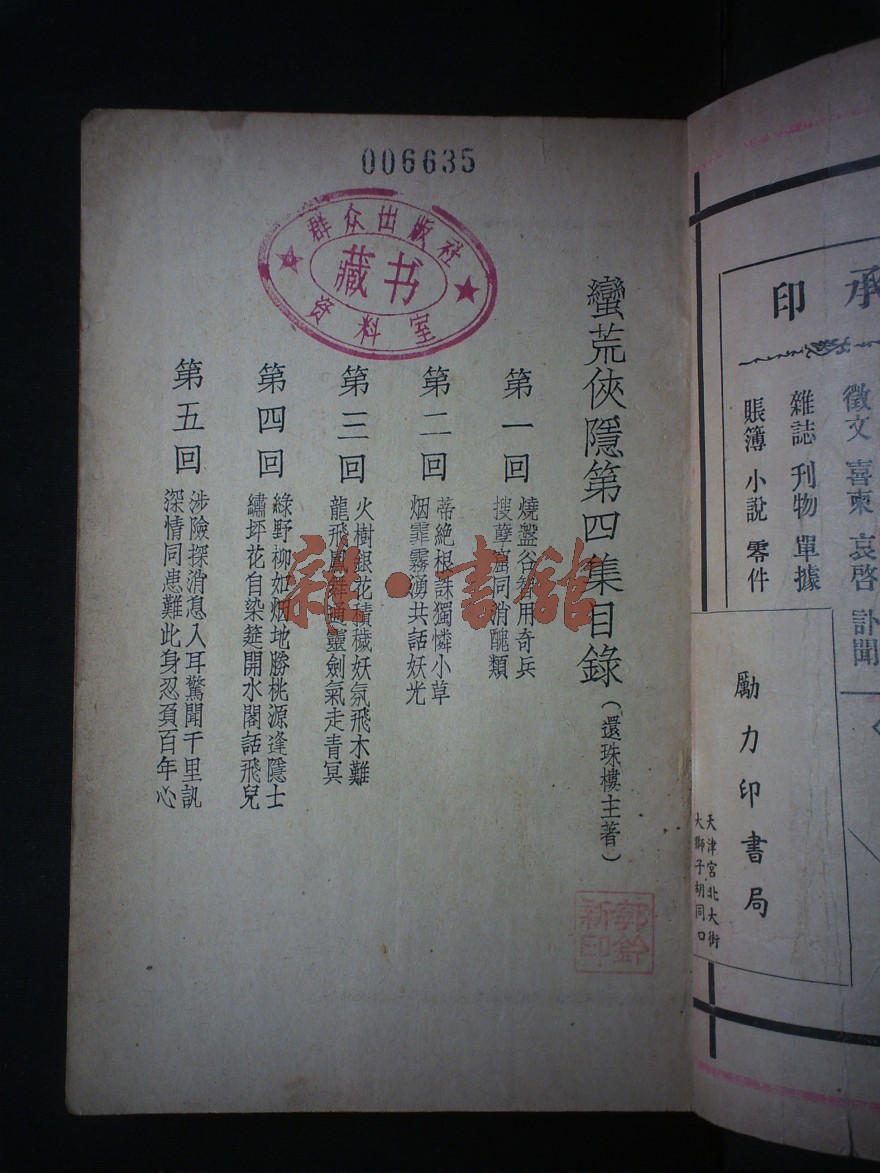 006635
群众出版社
藏书
资料室
蠻荒俠隱第四集目錄(還珠樓主著)
第一回
燒盤谷智用奇兵
搜孽窟同消醜類
第二回
蒂絕根誅獨憐小草
烟霏霧湧共話妖光
第三回
火樹銀花積穢妖氛飛木難
龍飛鳳舞通靈劍氣走青冥
第四回
綠野柳如烟地勝桃源逢隱士
繡坪花自染筵開水閣話飛兒
第五回
涉險探消息入耳驚聞千里訊
深情同患難此身忍負百年心
郭鈴
新印
新·書館
承印
徵文 喜柬 哀啓 訃聞
雜誌 刊物 單據
賬簿 小說 零件
勵力印書局
天津宮北大街
大獅子胡同口